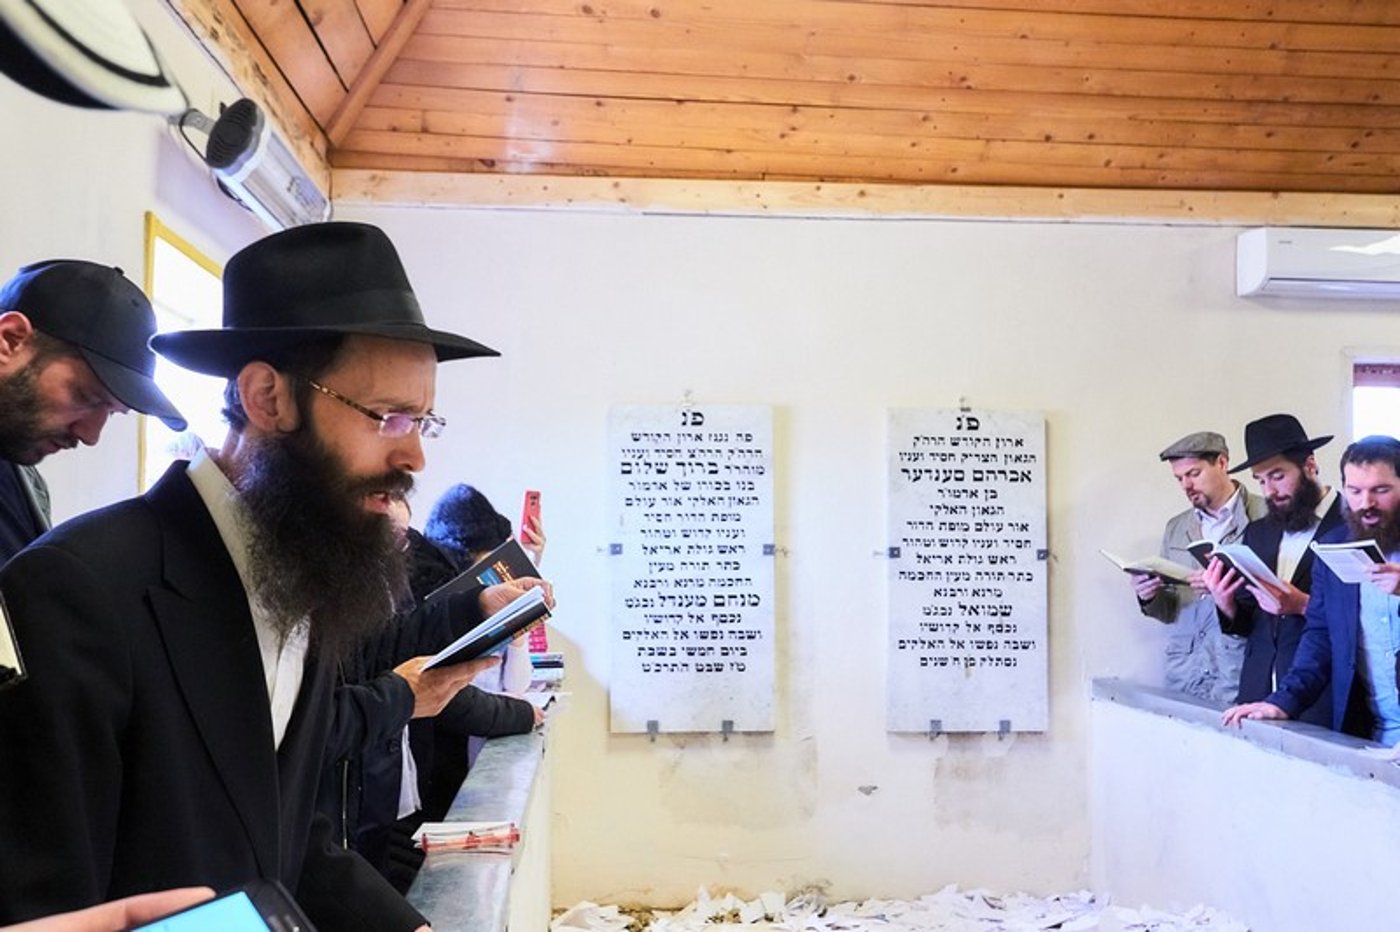 פ״נ
ארון הקודש הרה״ק
הגאון הצדיק חסיד ועניו
אברהם סענדער
בן אדמו״ר
הגאון האלקי
אור עולם מופת הדור
חסיד ועניו קדוש וטהור
ראש גולת אריאל
כתר תורה מעין החכמה
מרנא ורבנא
שמואל נבג״מ
נכסף אל קדושיו
ושבה נפשו אל האלקים
נסתלק בן ח׳ שנים
פ״נ
פה נגנז ארון הקודש
הרה״ק הרה״צ חסיד ועניו
מוהר״ר ברוך שלום
בנו בכורו של אדמו״ר
הגאון האלקי אור עולם
מופת הדור חסיד
ועניו קדוש וטהור
ראש גולת אריאל
כתר תורה מעין
החכמה מרנא ורבנא
מנחם מענדל נבג״מ
נכסף אל קדושיו
ושבה נפשו אל האלקים
ביום חמשי בשבת
ט״ז שבט ה׳תרכ״ט